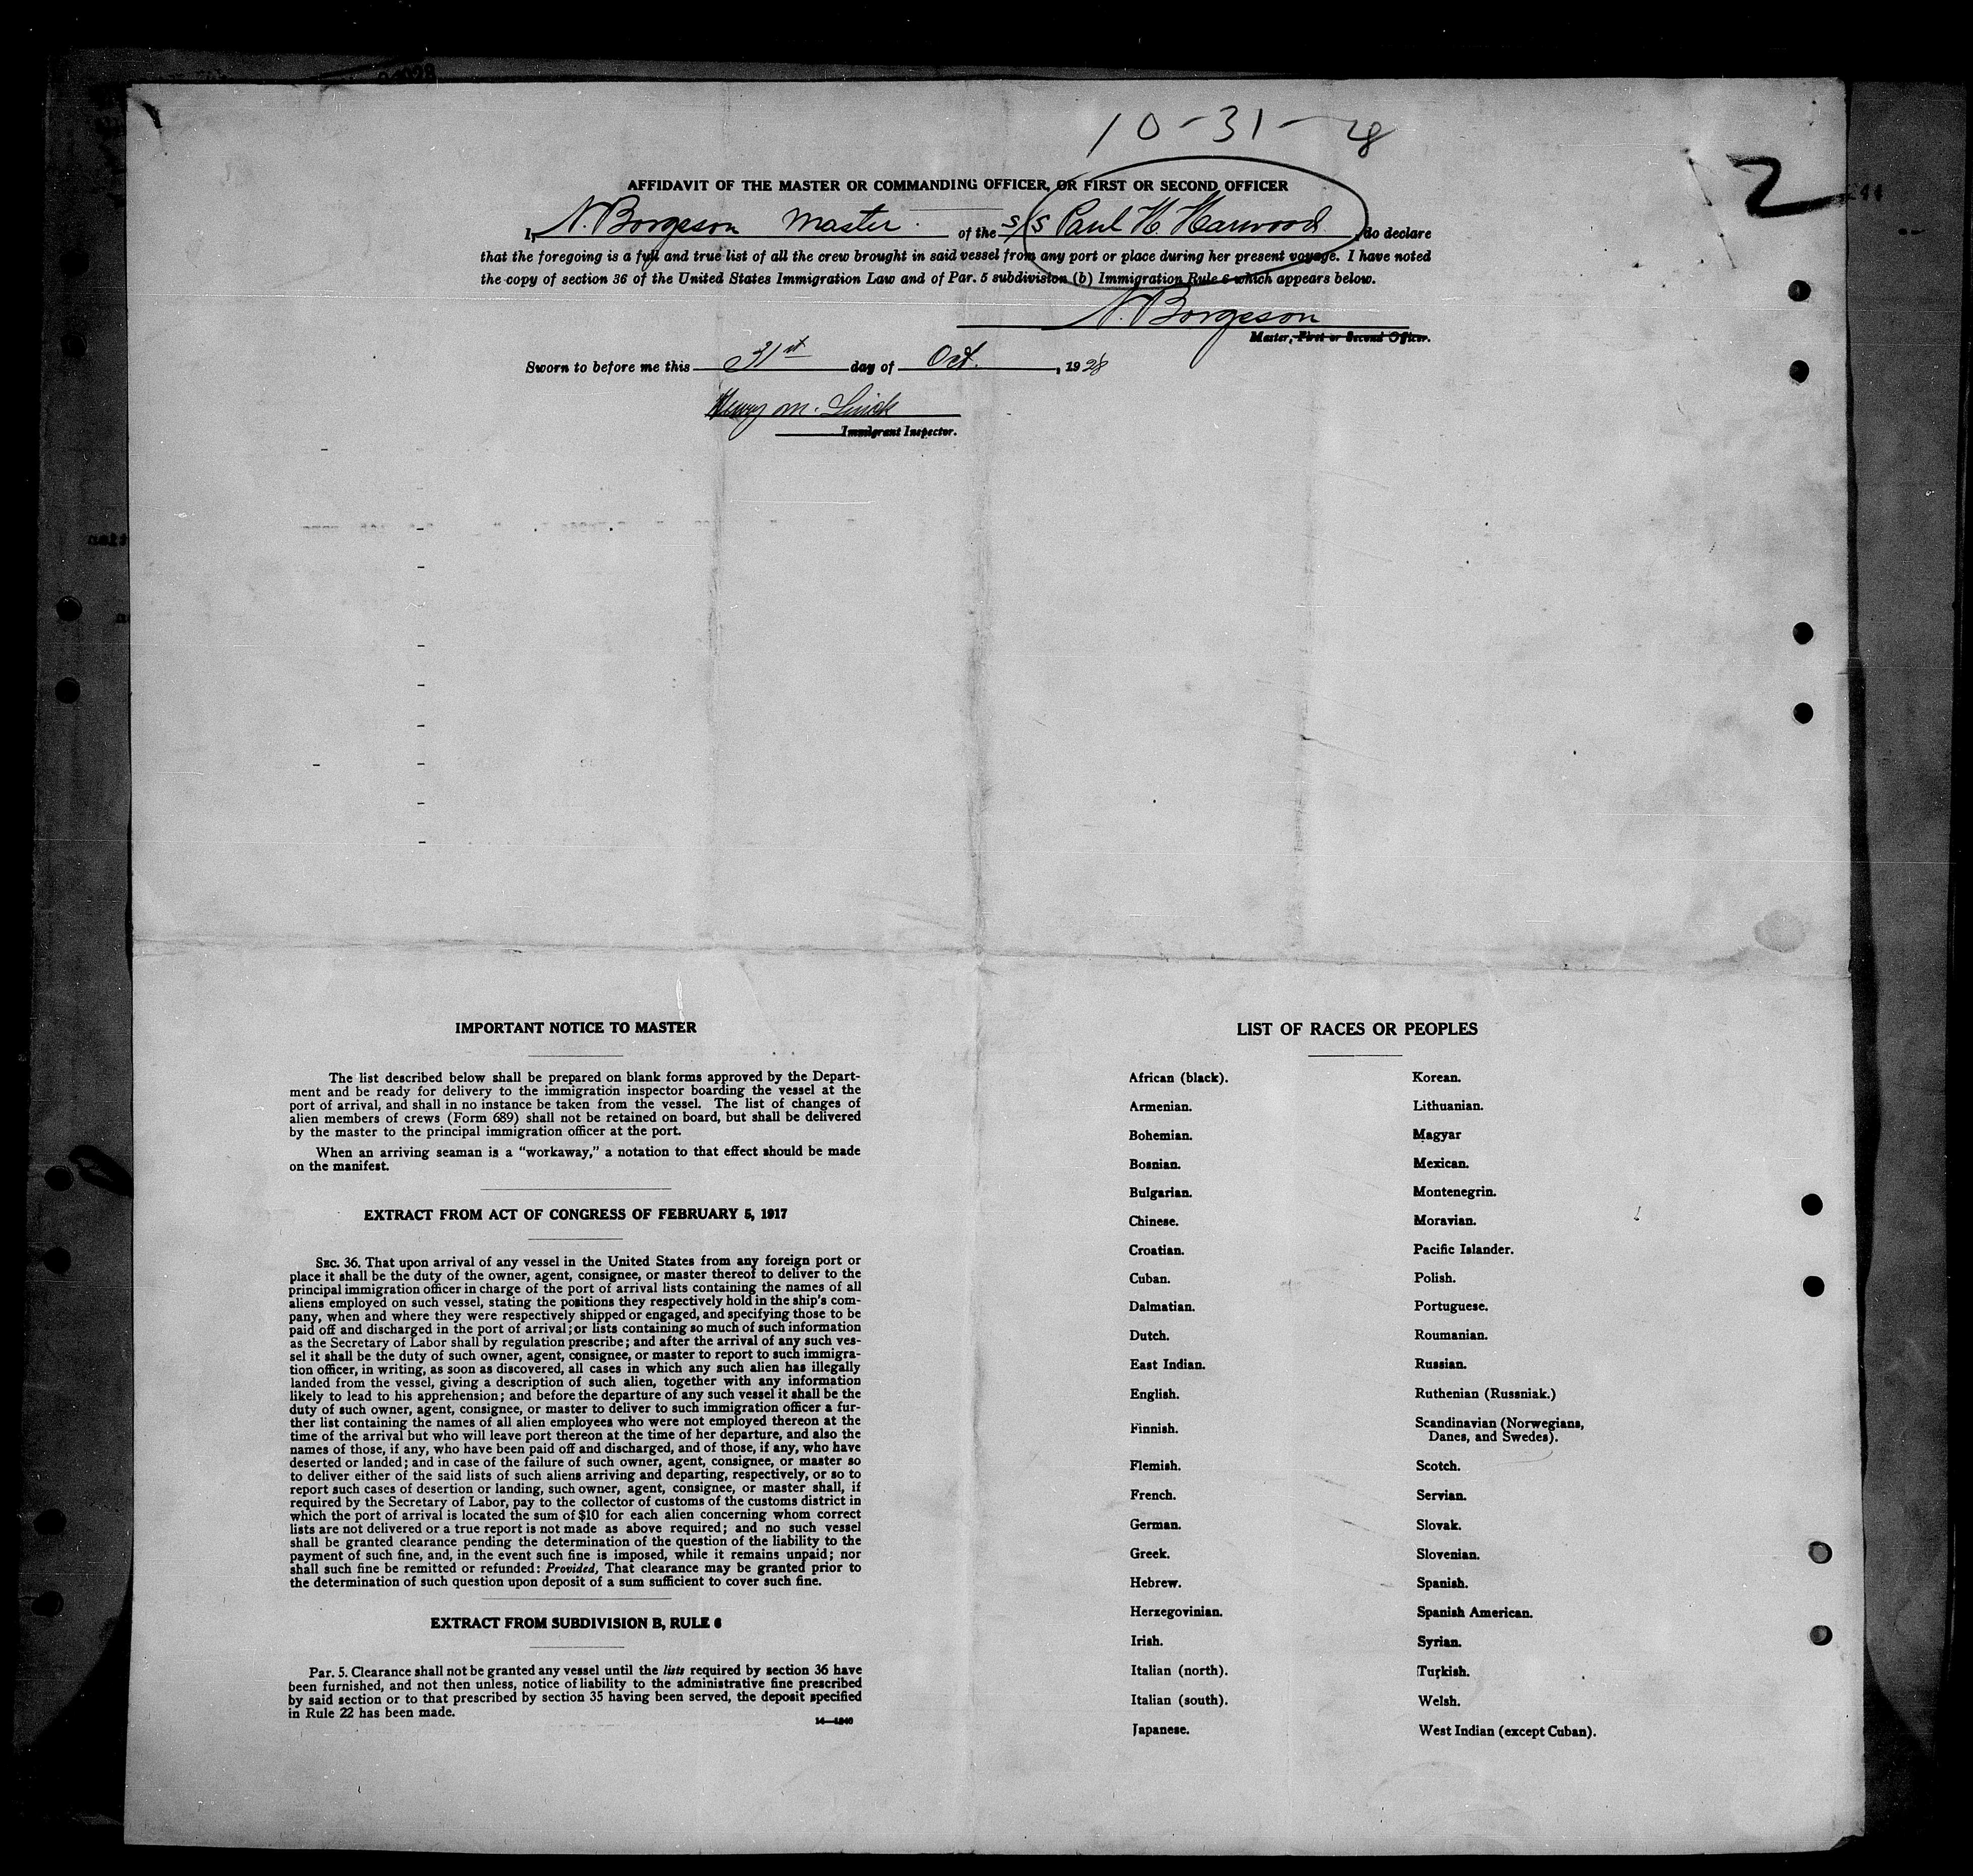 10-31-28
2
AFFIDAVIT OF THE MASTER OR COMMANDING OFFICER, OR FIRST OR SECOND OFFICER
I, N. Borgeson Master of the S/S Paul H. Harwood, do declare
that the foregoing is a full and true list of all the crew brought in said vessel from any port or place during her present voyage. I have noted
the copy of section 36 of the United States Immigration Law and of Par. 5 subdivision (b) Immigration Rule 6 which appears below.
N. Borgeson
Master, First or Second Officer.
Sworn to before me this 31st day of Oct., 1928
Henry M.
Immigrant Inspector.
IMPORTANT NOTICE TO MASTER
The list described below shall be prepared on blank forms approved by the Depart-
ment and be ready for delivery to the immigration inspector boarding the vessel at the
port of arrival, and shall in no instance be taken from the vessel. The list of changes of
alien members of crews (Form 689) shall not be retained on board, but shall be delivered
by the master to the principal immigration officer at the port.
When an arriving seaman is a "workaway," a notation to that effect should be made
on the manifest.
EXTRACT FROM ACT OF CONGRESS OF FEBRUARY 5, 1917
SEC. 36. That upon arrival of any vessel in the United States from any foreign port or
place it shall be the duty of the owner, agent, consignee, or master thereof to deliver to the
principal immigration officer in charge of the port of arrival lists containing the names of all
aliens employed on such vessel, stating the positions they respectively hold in the ship's com-
pany, when and where they were respectively shipped or engaged, and specifying those to be
paid off and discharged in the port of arrival; or lists containing so much of such information
as the Secretary of Labor shall by regulation prescribe; and after the arrival of any such ves-
sel it shall be the duty of such owner, agent, consignee, or master to report to such immigra-
tion officer, in writing, as soon as discovered, all cases in which any such alien has illegally
landed from the vessel, giving a description of such alien, together with any information
likely to lead to his apprehension; and before the departure of any such vessel it shall be the
duty of such owner, agent, consignee, or master to deliver to such immigration officer a fur-
ther list containing the names of all alien employees who were not employed thereon at the
time of the arrival but who will leave port thereon at the time of her departure, and also the
names of those, if any, who have been paid off and discharged, and of those, if any, who have
deserted or landed; and in case of the failure of such owner, agent, consignee, or master so
to deliver either of the said lists of such aliens arriving and departing, respectively, or so to
report such cases of desertion or landing, such owner, agent, consignee, or master shall, if
required by the Secretary of Labor, pay to the collector of customs of the customs district in
which the port of arrival is located the sum of $10 for each alien concerning whom correct
lists are not delivered or a true report is not made as above required; and no such vessel
shall be granted clearance pending the determination of the question of the liability to the
payment of such fine, and, in the event such fine is imposed, while it remains unpaid; nor
shall such fine be remitted or refunded: Provided, That clearance may be granted prior to
the determination of such question upon deposit of a sum sufficient to cover such fine.
EXTRACT FROM SUBDIVISION B, RULE 6
Par. 5. Clearance shall not be granted any vessel until the lists required by section 36 have
been furnished, and not then unless, notice of liability to the administrative fine prescribed
by said section or to that prescribed by section 35 having been served, the deposit specified
in Rule 22 has been made.
LIST OF RACES OR PEOPLES
African (black).
Armenian.
Bohemian.
Bosnian.
Bulgarian.
Chinese.
Croatian.
Cuban.
Dalmatian.
Dutch.
East Indian.
English.
Finnish.
Flemish.
French.
German.
Greek.
Hebrew.
Herzegovinian.
Irish.
Italian (north).
Italian (south).
Japanese.
Korean.
Lithuanian.
Magyar
Mexican.
Montenegrin.
Moravian.
Pacific Islander.
Polish.
Portuguese.
Roumanian.
Russian.
Ruthenian (Russniak.)
Scandinavian (Norwegians,
Danes, and Swedes).
Scotch.
Servian.
Slovak.
Slovenian.
Spanish.
Spanish American.
Syrian.
Turkish.
Welsh.
West Indian (except Cuban).